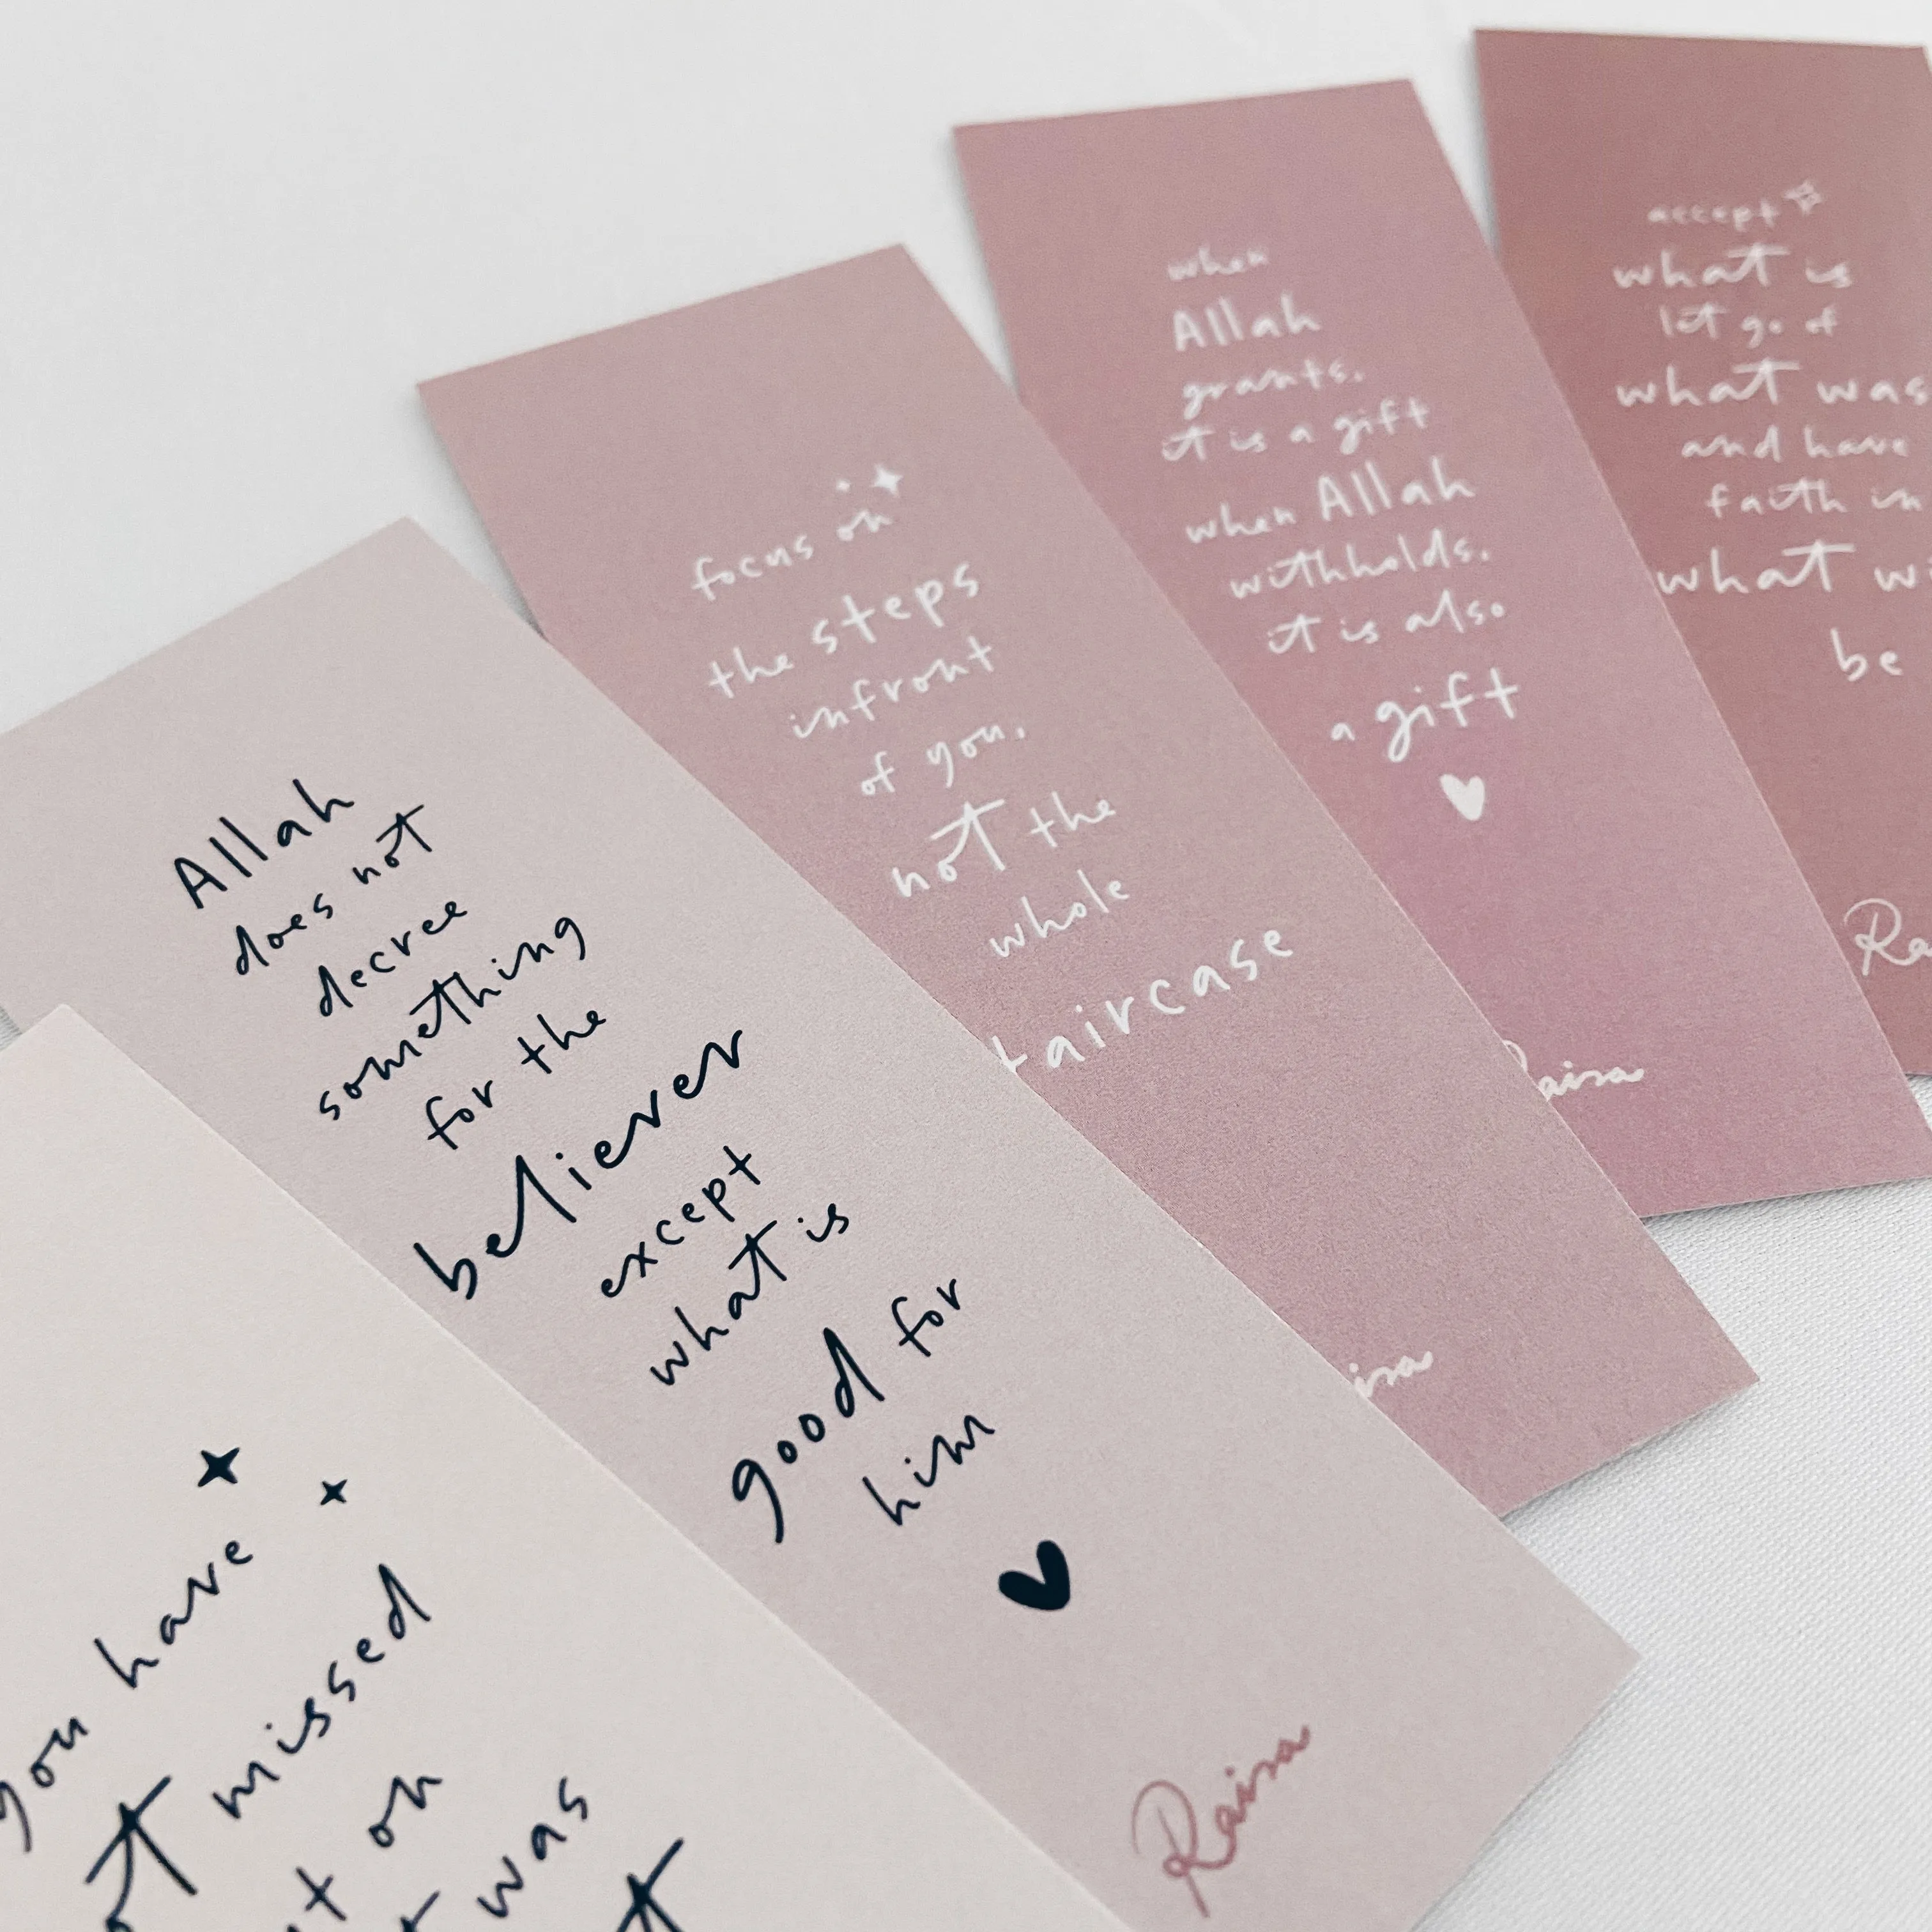 you have
missed
on
was
Allah
does not
decree
something
for the
believer
except
what is
good for
him
Raisa
focus on
the steps
infront
of you,
not the
whole
taircase
isa
when
Allah
grants,
it is a gift
when Allah
withholds,
it is also
a gift
Raisa
accept
what is
let go of
what was
and have
faith in
what wi
be
Ra